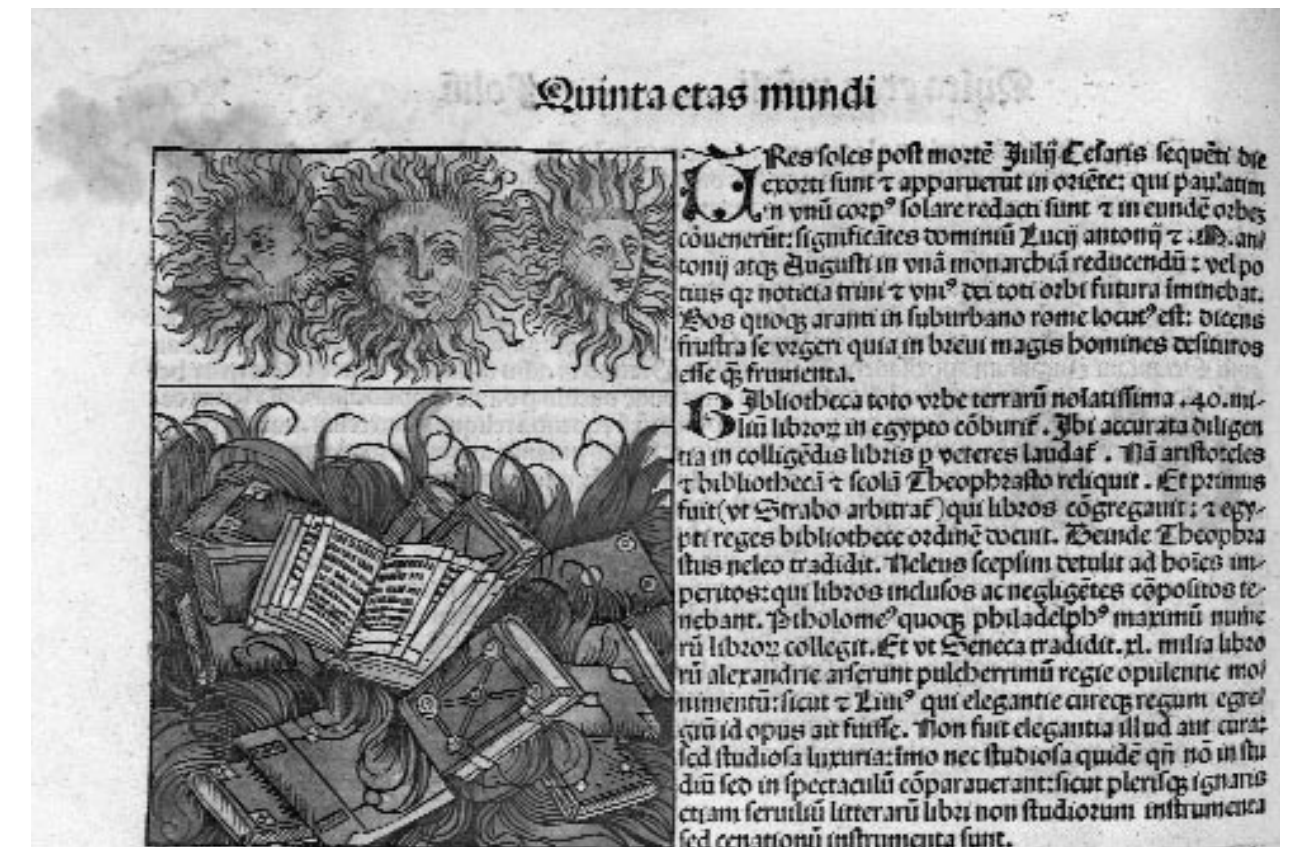 Quinta etas mundi
TRes soles post mortē Julij Cesaris sequēti die
exorti sunt ⁊ apparuerūt in oriēte: qui paulatim
in vnū corpꝰ solare redacti sunt ⁊ in eundē orbeꝫ
cōuenerūt: significātes dominiū Lucij antonij ⁊ .M. an⸗
tonij atqꝫ Augusti in vnā monarchiā reducendū: vel po
tius qꝛ noticia trini ⁊ vniꝰ dei toti orbi futura īminebat.
Bos quoqꝫ aranti in suburbano rome locutꝰ est: dicens
frustra se vrgeri quia in breui magis homines desituros
esse q̄ꝫ frumenta.
BIbliotheca toto vrbe terrarū nolatissima .40. mi⸗
liū libroꝝ in egypto cōburit᷑. Ibi accurata diligen
tia in colligēdis libris p veteres laudat᷑. Nā aristoteles
⁊ bibliothecā ⁊ scolā Theophrasto reliquit. Et primus
fuit (vt Strabo arbitrat᷑) qui libros cōgregauit: ⁊ egy⸗
pti reges bibliothece ordinē docuit. Deinde Theophra
stus neleo tradidit. Neleus scepsim detulit ad hoīes im⸗
peritos: qui libros inclusos ac negligētes cōpositos te⸗
nebant. Ptholomeꝰ quoqꝫ philadelphꝰ maximū nume
rū libroꝝ collegit. Et vt Seneca tradidit. xl. milia libro
rū alexandrie arserunt pulcherrimū regie opulentie mo⸗
nimentū: sicut ⁊ Liuiꝰ qui elegantie cureqꝫ regum egre⸗
giū id opus ait fuisse. Non fuit elegantia illud aut cura:
sed studiosa luxuria: imo nec studiosa quidē qn̄ nō in stu
diū sed in spectaculū cōparauerant: sicut plerisqꝫ ignaris
etiam seruiliū litterarū libri non studiorum instrumenta
sed cenationū instrumenta sunt.